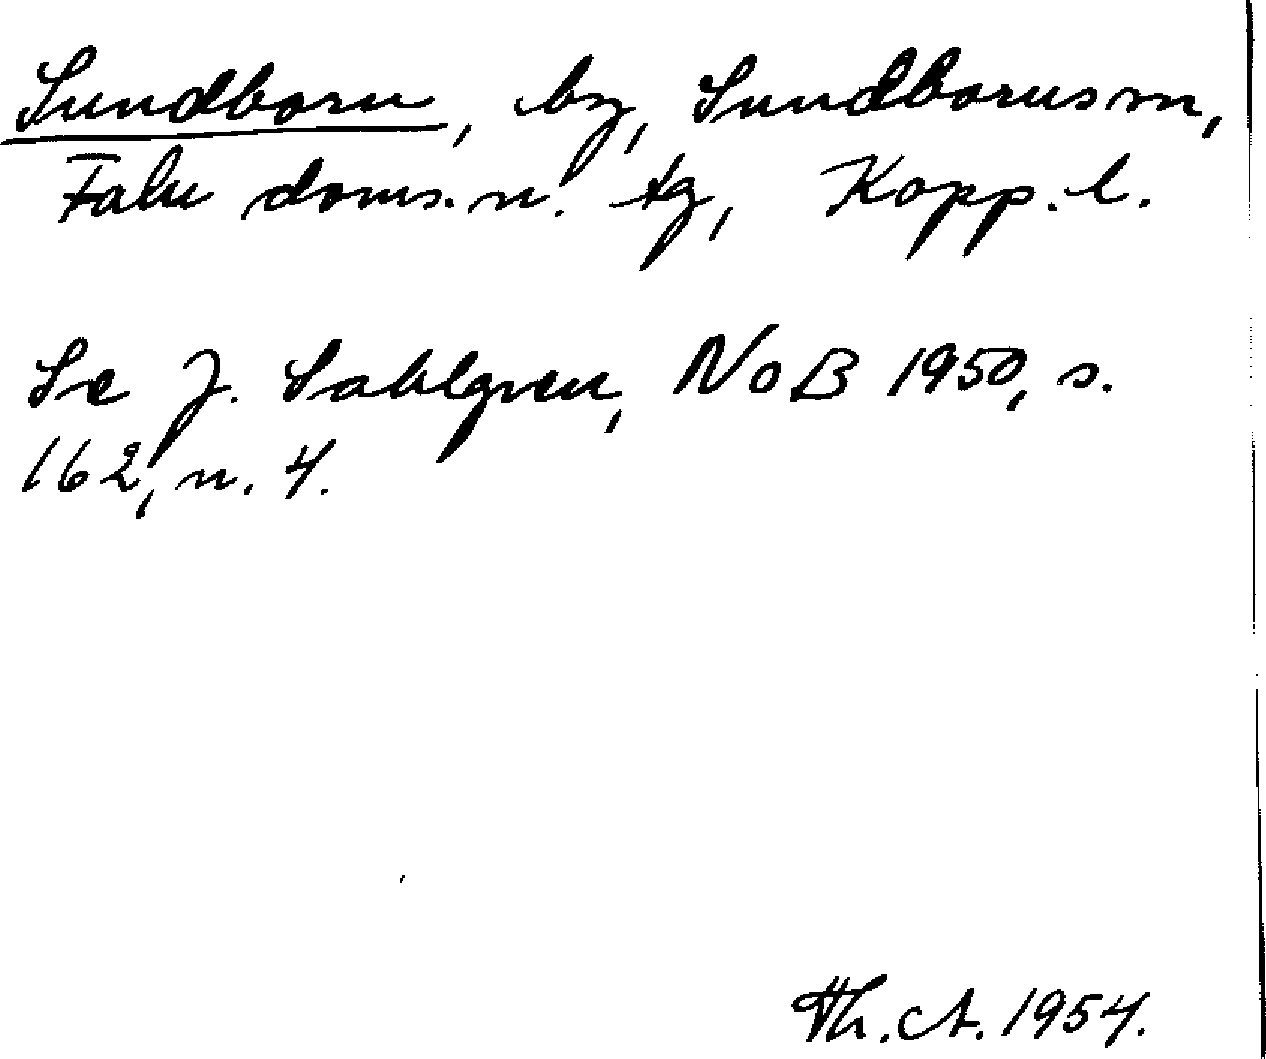 Sundborn, by, Sundborns sn,
Falu doms. n. tg, Kopp. l.
Se J. Sahlgren, NoB 1950, s.
162, n. 4.
Th. A. 1954.